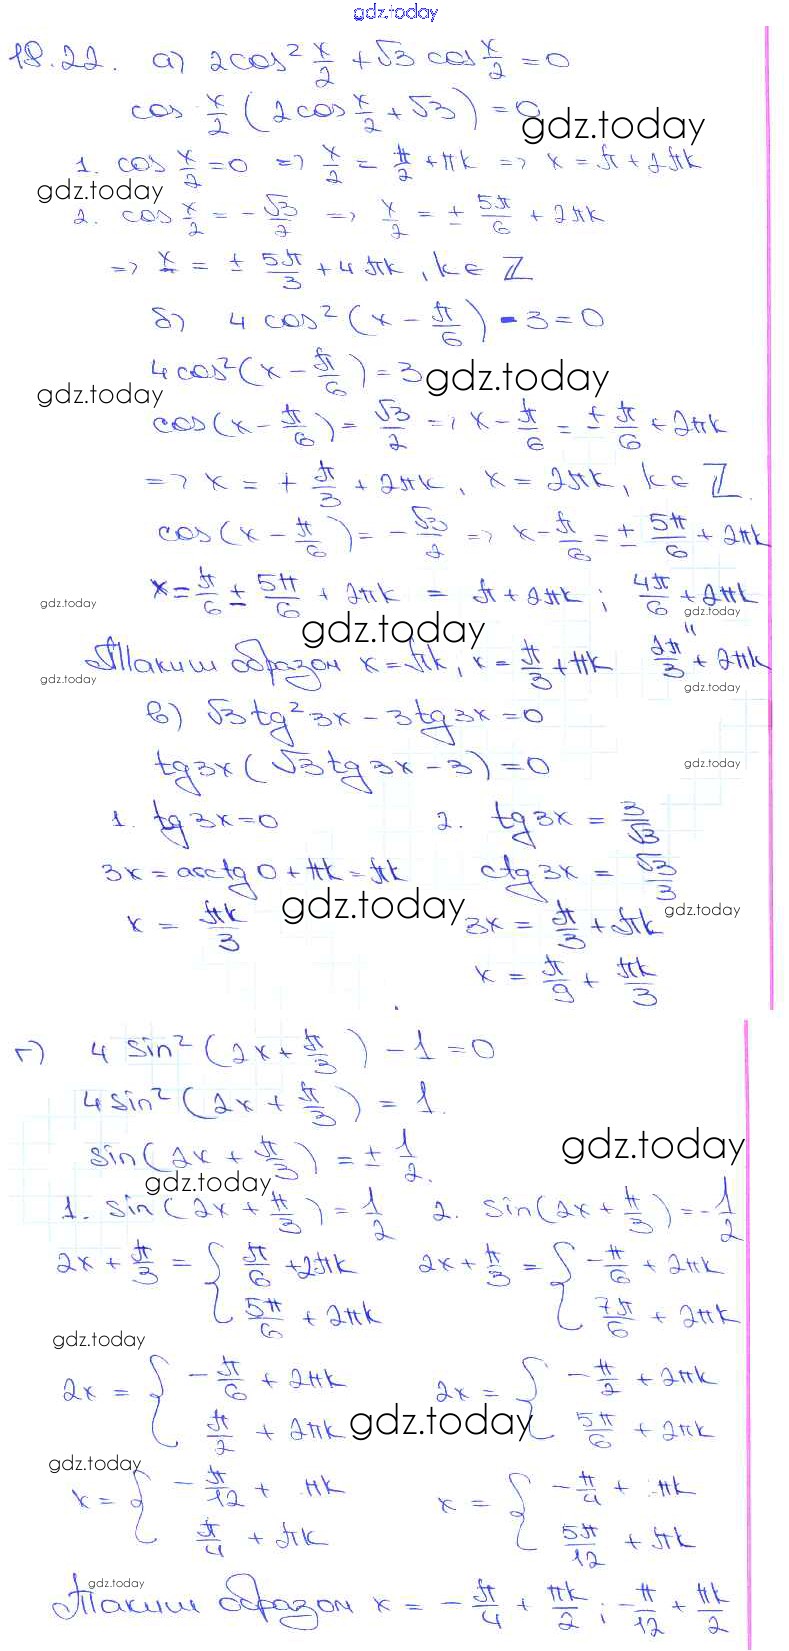 gdz.today
18.22. а) 2cos² x/2 + √3 cos x/2 = 0
cos x/2 (2cos x/2 + √3) = 0
gdz.today
1. cos x/2 = 0 => x/2 = π/2 + πk => x = π + 2πk
gdz.today
2. cos x/2 = - √3/2 => x/2 = ± 5π/6 + 2πk
=> x = ± 5π/3 + 4πk, k ∈ Z
б) 4 cos² (x - π/6) - 3 = 0
4cos² (x - π/6) = 3
gdz.today
gdz.today
cos(x - π/6) = √3/2 => x - π/6 = ± π/6 + 2πk
=> x = + π/3 + 2πk, x = 2πk, k ∈ Z.
cos(x - π/6) = - √3/2 => x - π/6 = ± 5π/6 + 2πk
x = π/6 ± 5π/6 + 2πk = π + 2πk ; 4π/6 + 2πk
gdz.today
gdz.today
gdz.today
"
Таким образом x = πk, x = π/3 + πk 2π/3 + 2πk
gdz.today
gdz.today
в) √3 tg² 3x - 3tg 3x = 0
tg 3x (√3 tg 3x - 3) = 0
gdz.today
1. tg 3x = 0 2. tg 3x = 3/√3
3x = arctg 0 + πk = πk ctg 3x = √3/3
x = πk/3 3x = π/3 + πk
gdz.today
gdz.today
x = π/9 + πk/3
г) 4 sin² (2x + π/3) - 1 = 0
4 sin² (2x + π/3) = 1.
sin(2x + π/3) = ± 1/2.
gdz.today
gdz.today
1. sin(2x + π/3) = 1/2 2. sin(2x + π/3) = - 1/2
2x + π/3 = { π/6 + 2πk 2x + π/3 = { - π/6 + 2πk
5π/6 + 2πk 7π/6 + 2πk
gdz.today
2x = { - π/6 + 2πk 2x = { - π/2 + 2πk
π/2 + 2πk 5π/6 + 2πk
gdz.today
gdz.today
x = { - π/12 + πk x = { - π/4 + πk
π/4 + πk 5π/12 + πk
gdz.today
Таким образом x = - π/4 + πk/2 ; - π/12 + πk/2